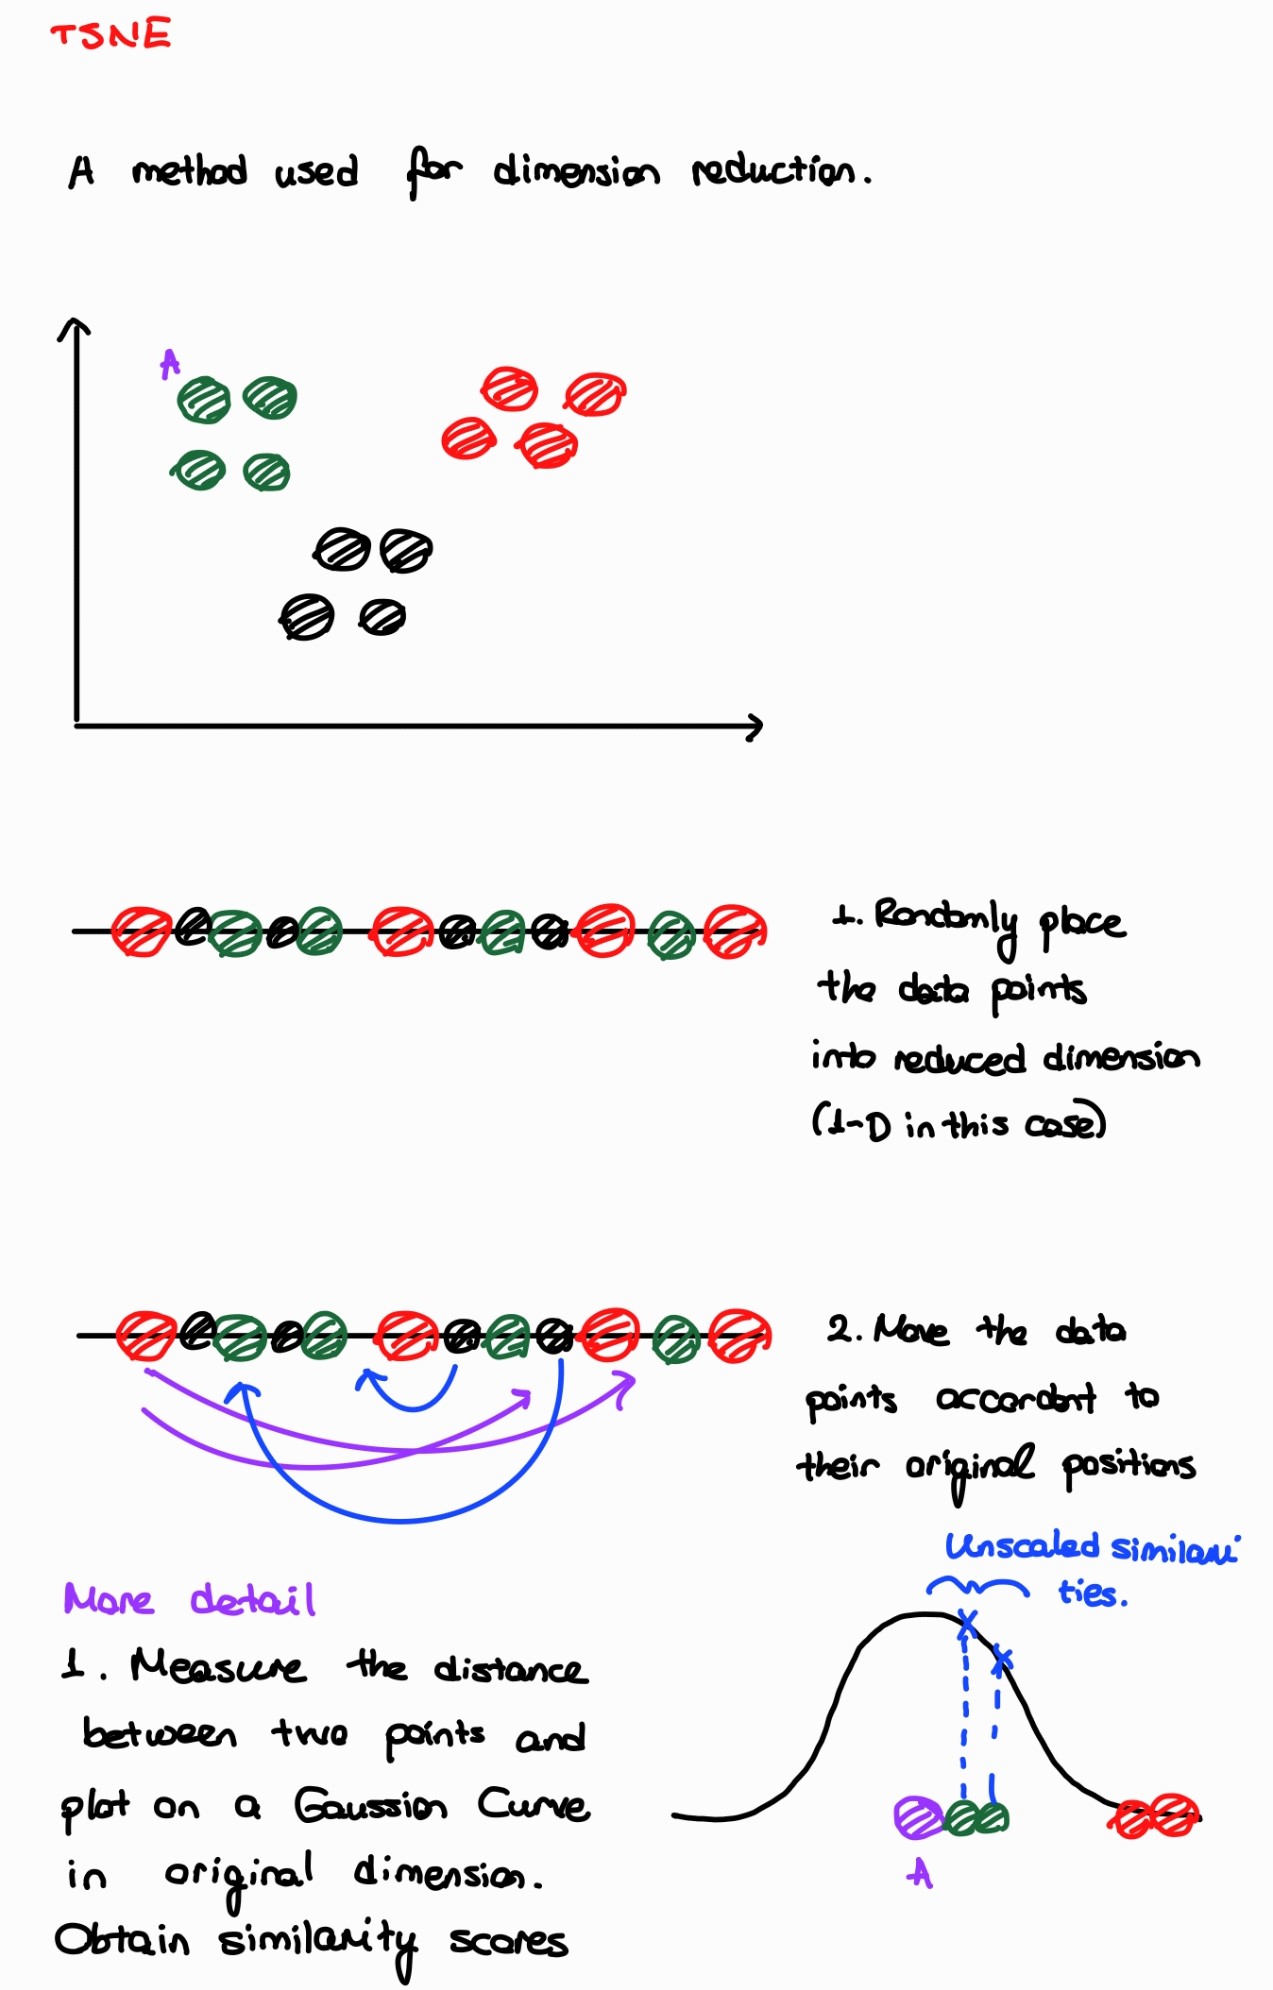 TSNE
A method used for dimension reduction.
A
1. Randomly place
the data points
into reduced dimension
(1-D in this case)
2. Move the data
points accordant to
their original positions
Unscaled similari
ties.
More detail
1. Measure the distance
between two points and
plot on a Gaussion Curve
in original dimension.
Obtain similarity scores
A